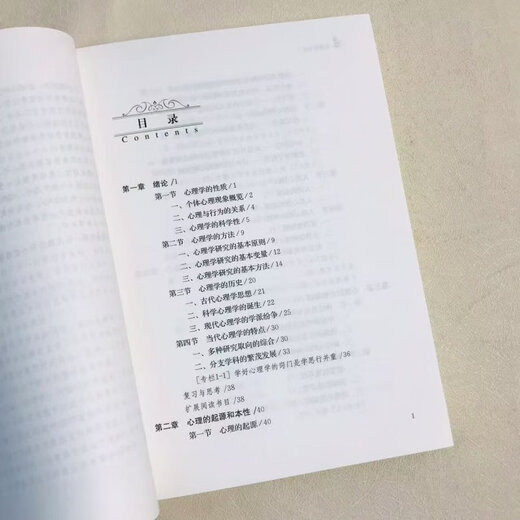 目录
Contents
第一章 绪论/1
第一节 心理学的性质/1
一、个体心理现象概览/2
二、心理与行为的关系/4
三、心理学的科学性/5
第二节 心理学的方法/9
一、心理学研究的基本原则/9
二、心理学研究的基本变量/12
三、心理学研究的基本方法/14
第三节 心理学的历史/20
一、古代心理学思想/21
二、科学心理学的诞生/22
三、现代心理学的学派纷争/25
第四节 当代心理学的特点/30
一、多种研究取向的综合/30
二、分支学科的繁茂发展/33
[专栏1-1]学好心理学的窍门是学思行并重/36
复习与思考/38
扩展阅读书目/38
第二章 心理的起源和本性/40
第一节 心理的起源/40
1